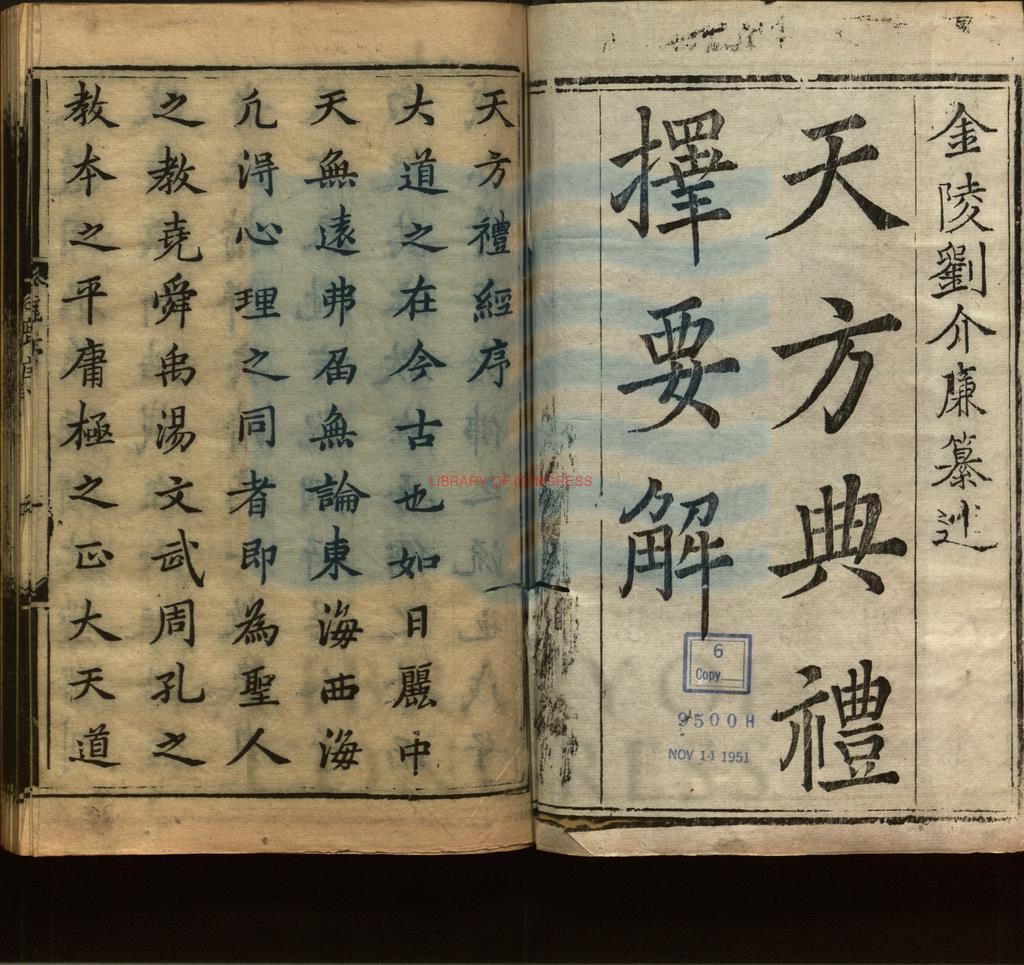 金陵劉介廉纂述
天方典禮
擇要解
6
Copy
9500H
NOV 14 1951
LIBRARY OF CONGRESS
天方禮經序
大道之在今古也如日麗中
天無遠弗屆無論東海西海
凢淂心理之同者即為聖人
之教堯舜禹湯文武周孔之
教本之平庸極之正大天道